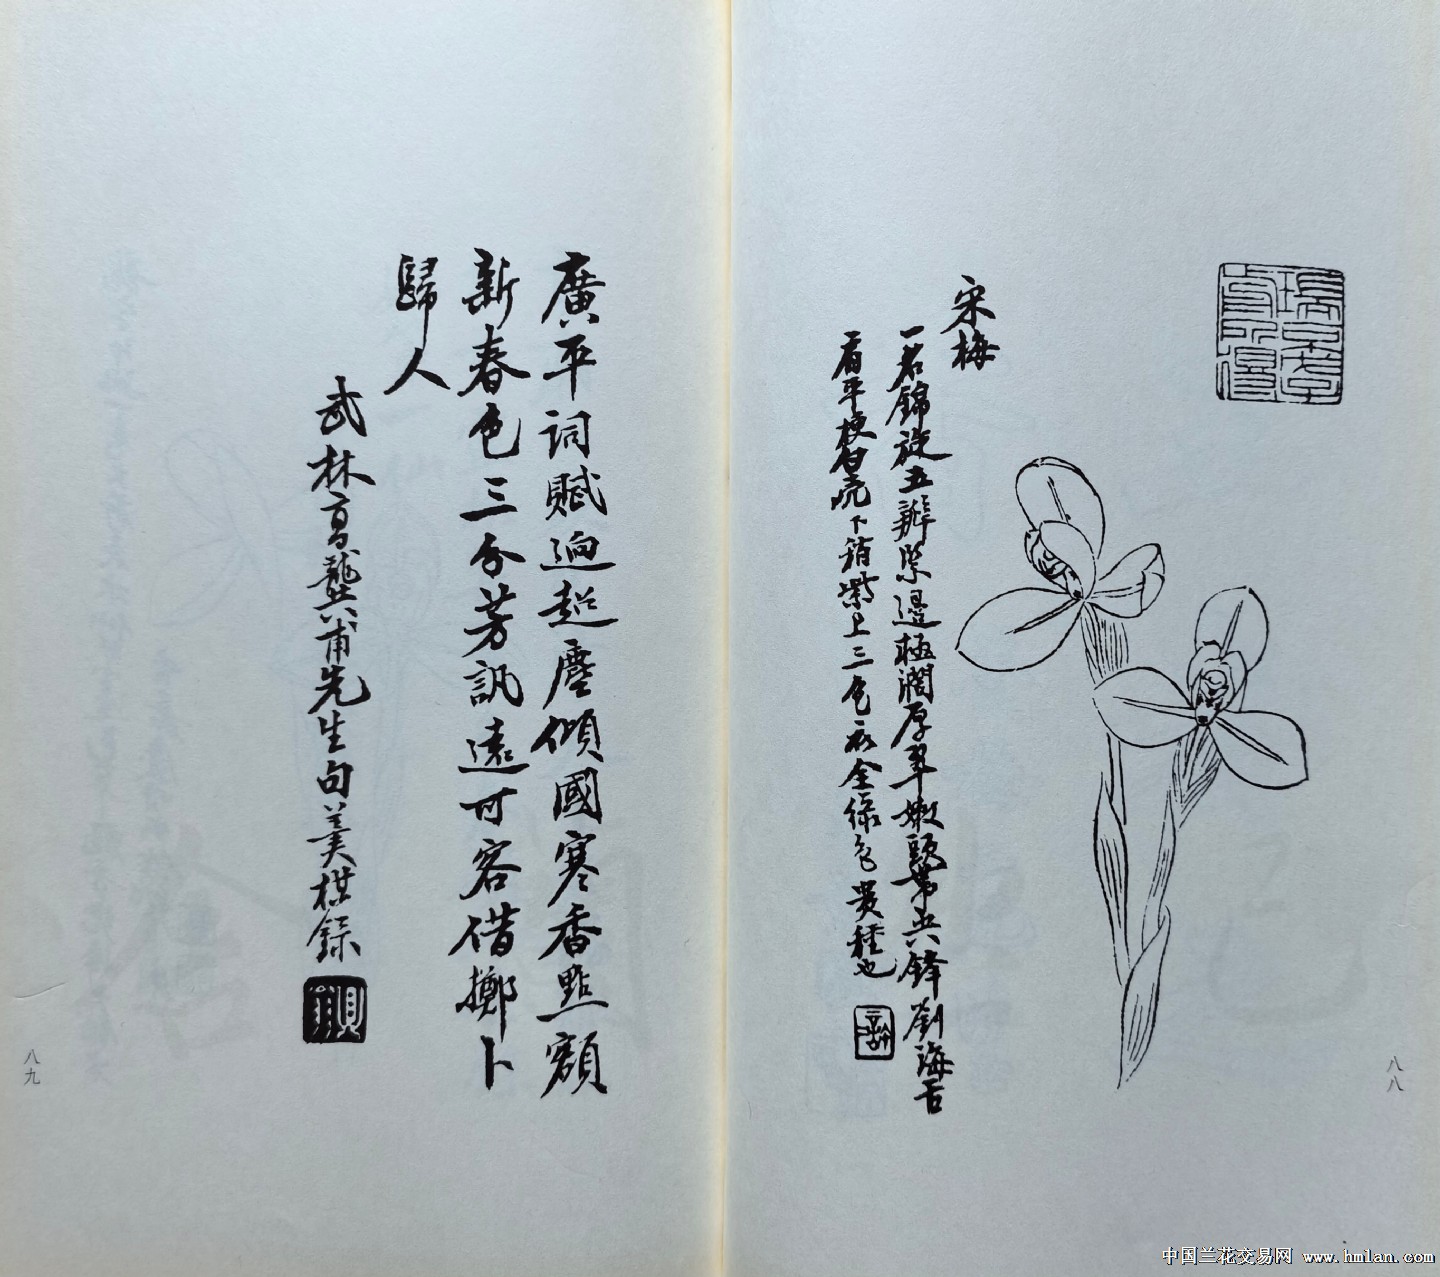 宋梅
一名錦旋五瓣緊邊極濶厚翠嫩頭帶兵鋒劉海舌
肩平梗白殼下筍紫上三色衣全綠色異種也
八八
廣平詞賦逈超塵傾國寒香點額
新春色三分芳訊遠可容借擲卜
歸人
武林高龔甫先生句美棋錄
八九
中国兰花交易网 www.hmlan.com